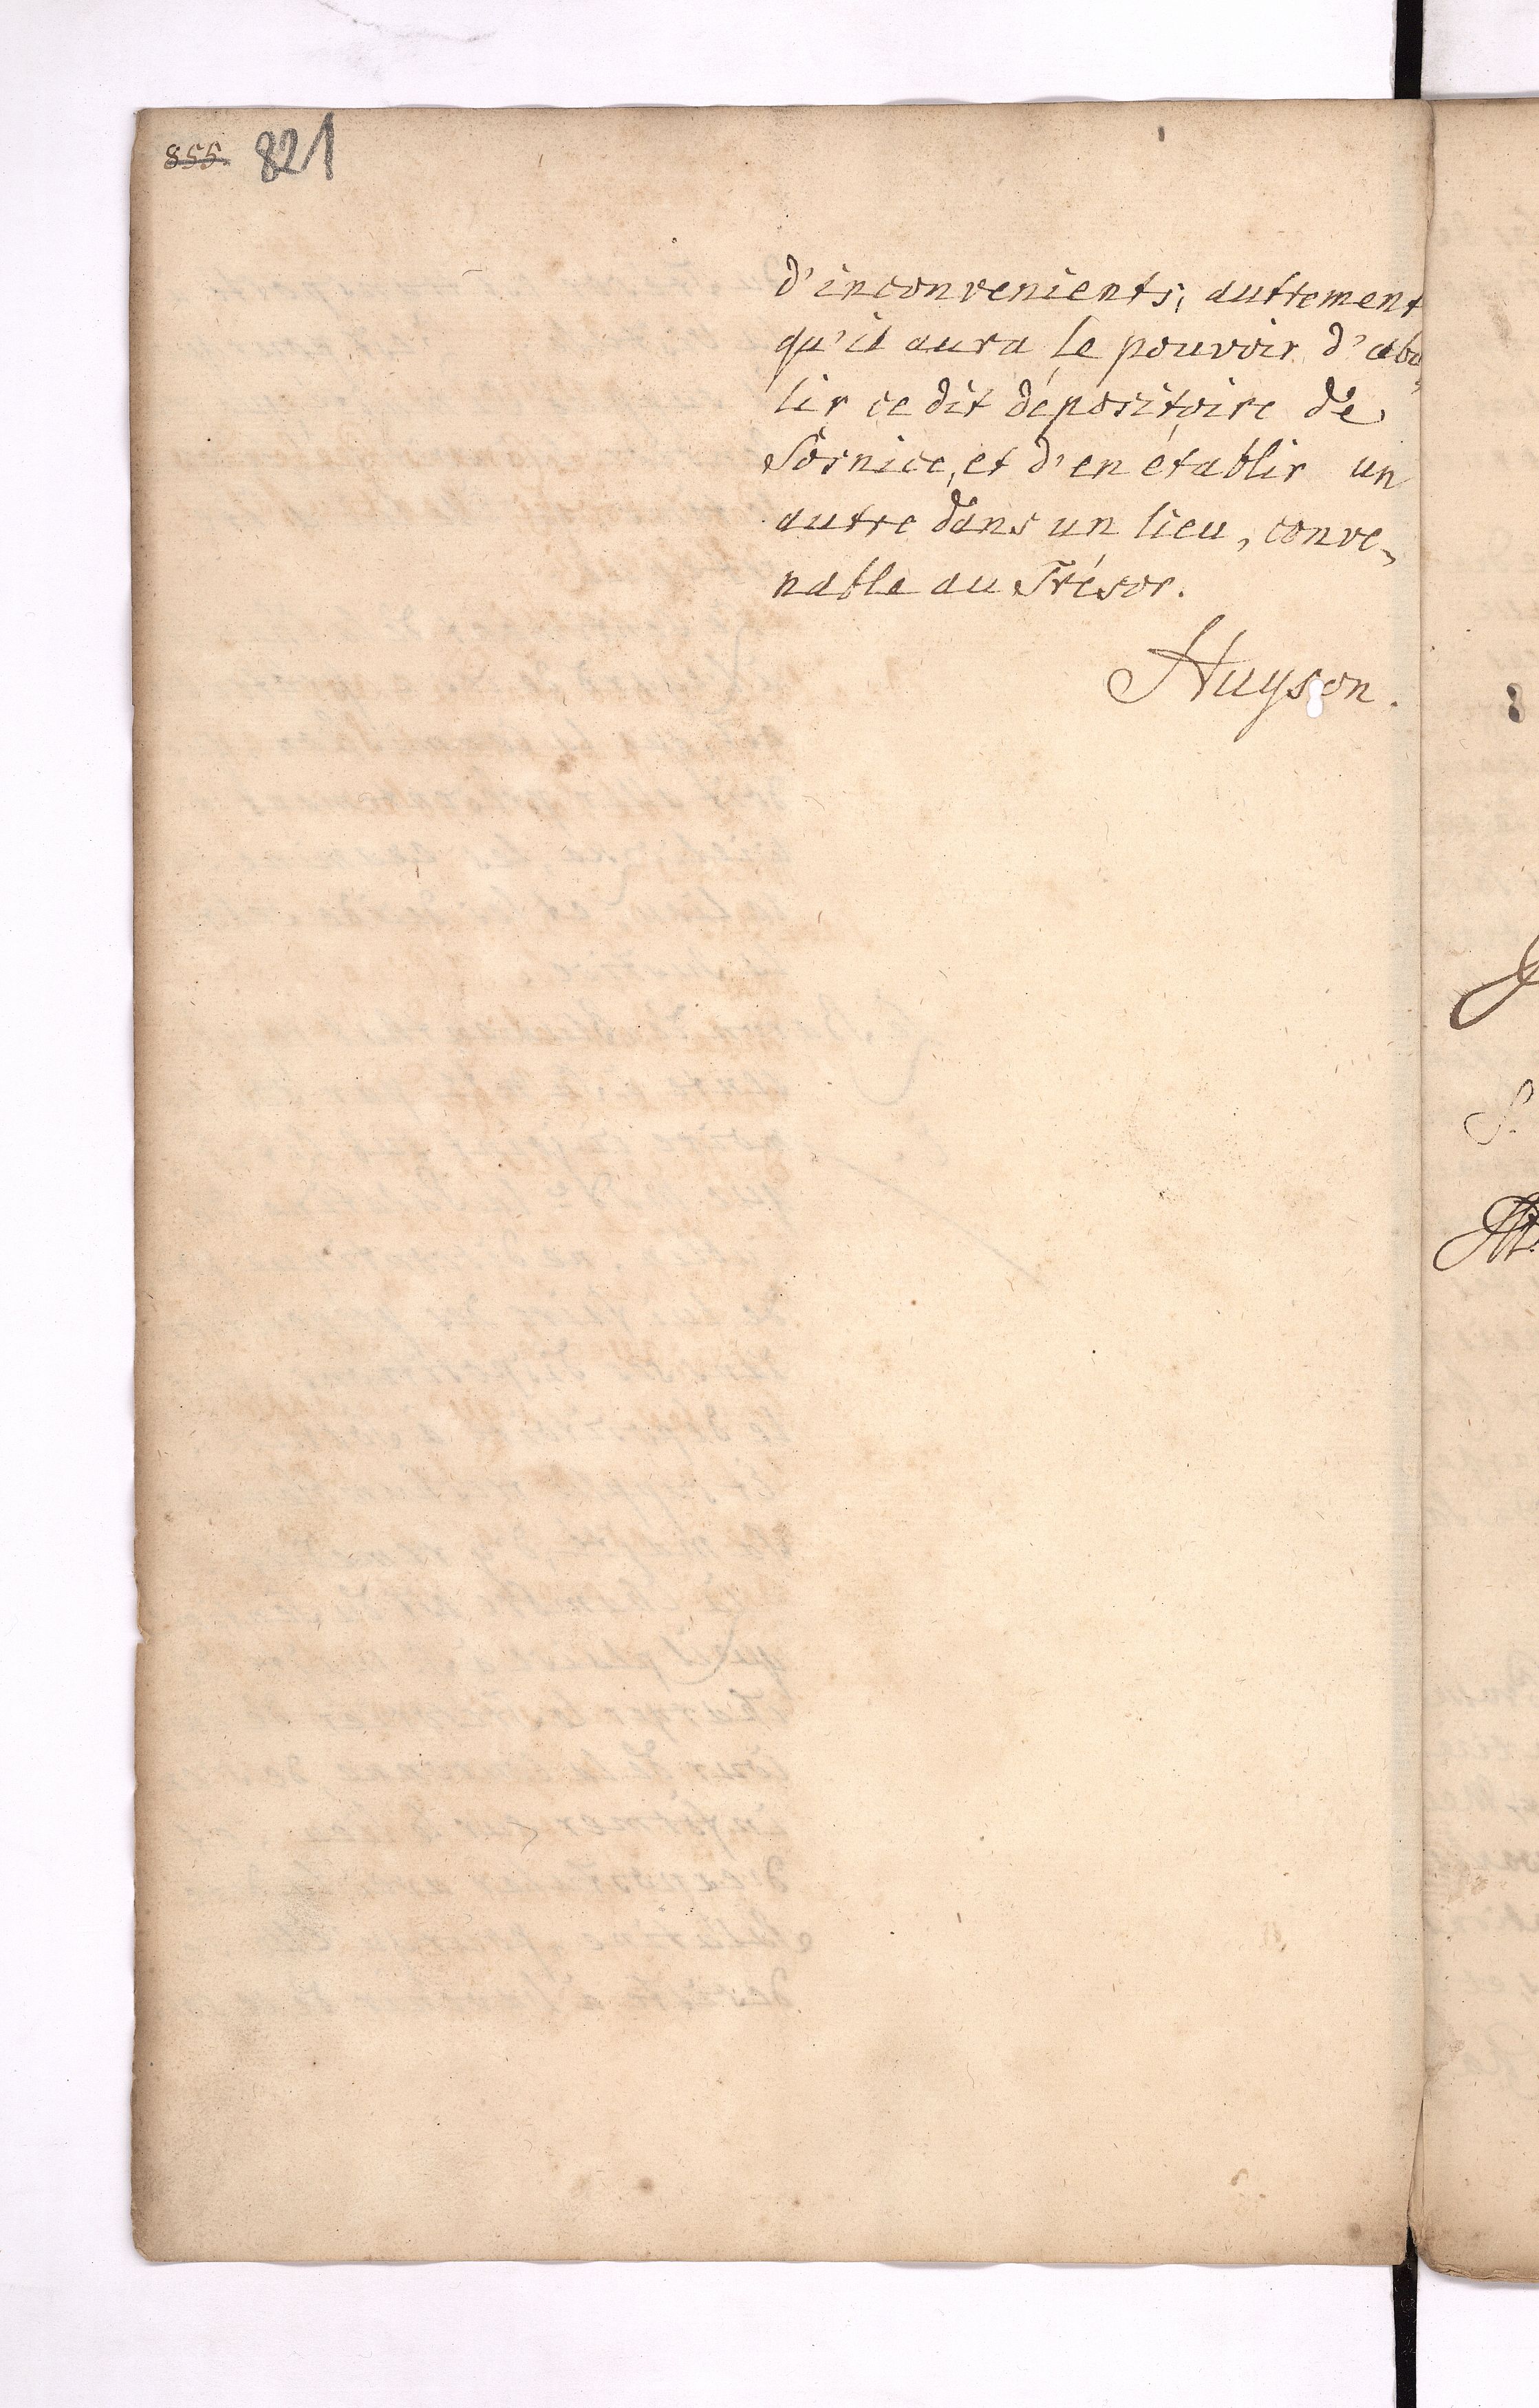 855 821
d'inconvenients, auttement
qu'il aura le pouvoir d'abo
lir ce dit dépositoire de
Sornice, et d'en établir un
autre dans un lieu, conve,
nable au Trésor.
Huyson.